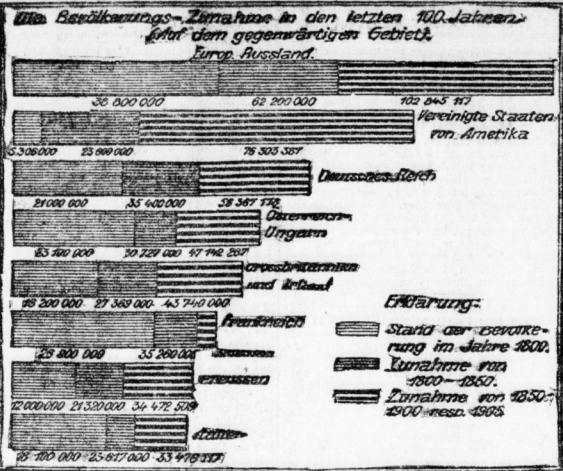 Die Bevölkerungs-Zunahme in den letzten 100 Jahren.
(Auf dem gegenwärtigen Gebiet).
Europ. Russland.
38 800 000 62 200 000 102 845 117
Vereinigte Staaten
von Amerika
5.306 000 23 000 000 76 303 387
Deutsches Reich
21000 000 35 400 000 56 367 178
Österreich-
Ungarn
23 100 000 30 727 000 47 142 267
Grossbritannien
und Irland
16 200 000 27 369 000 43 740 000
Frankreich
26 900 000 35 260 000
Preussen
12 000 000 21 320 000 34 472 509
Italien
18 100 000 23 617 000 33 476 117
Erklärung:
Stand der Bevölke-
rung im Jahre 1800.
Zunahme von
1800-1850.
Zunahme von 1850-
1900 resp. 1905